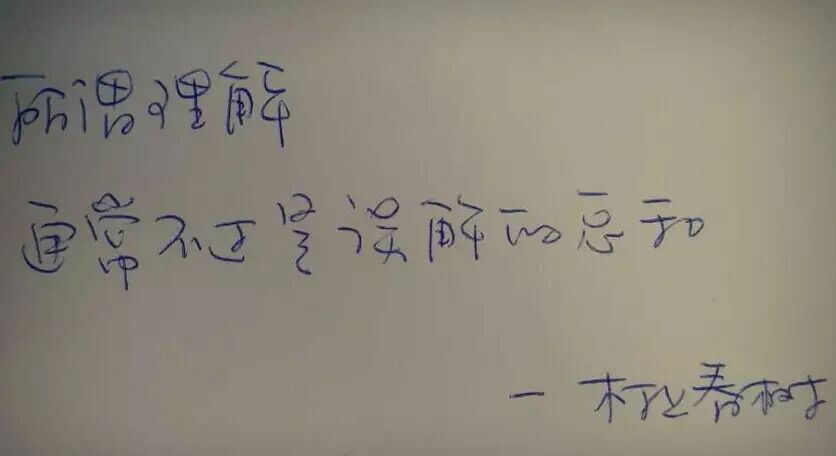 所谓理解
通常不过是误解的总和
一村上春树